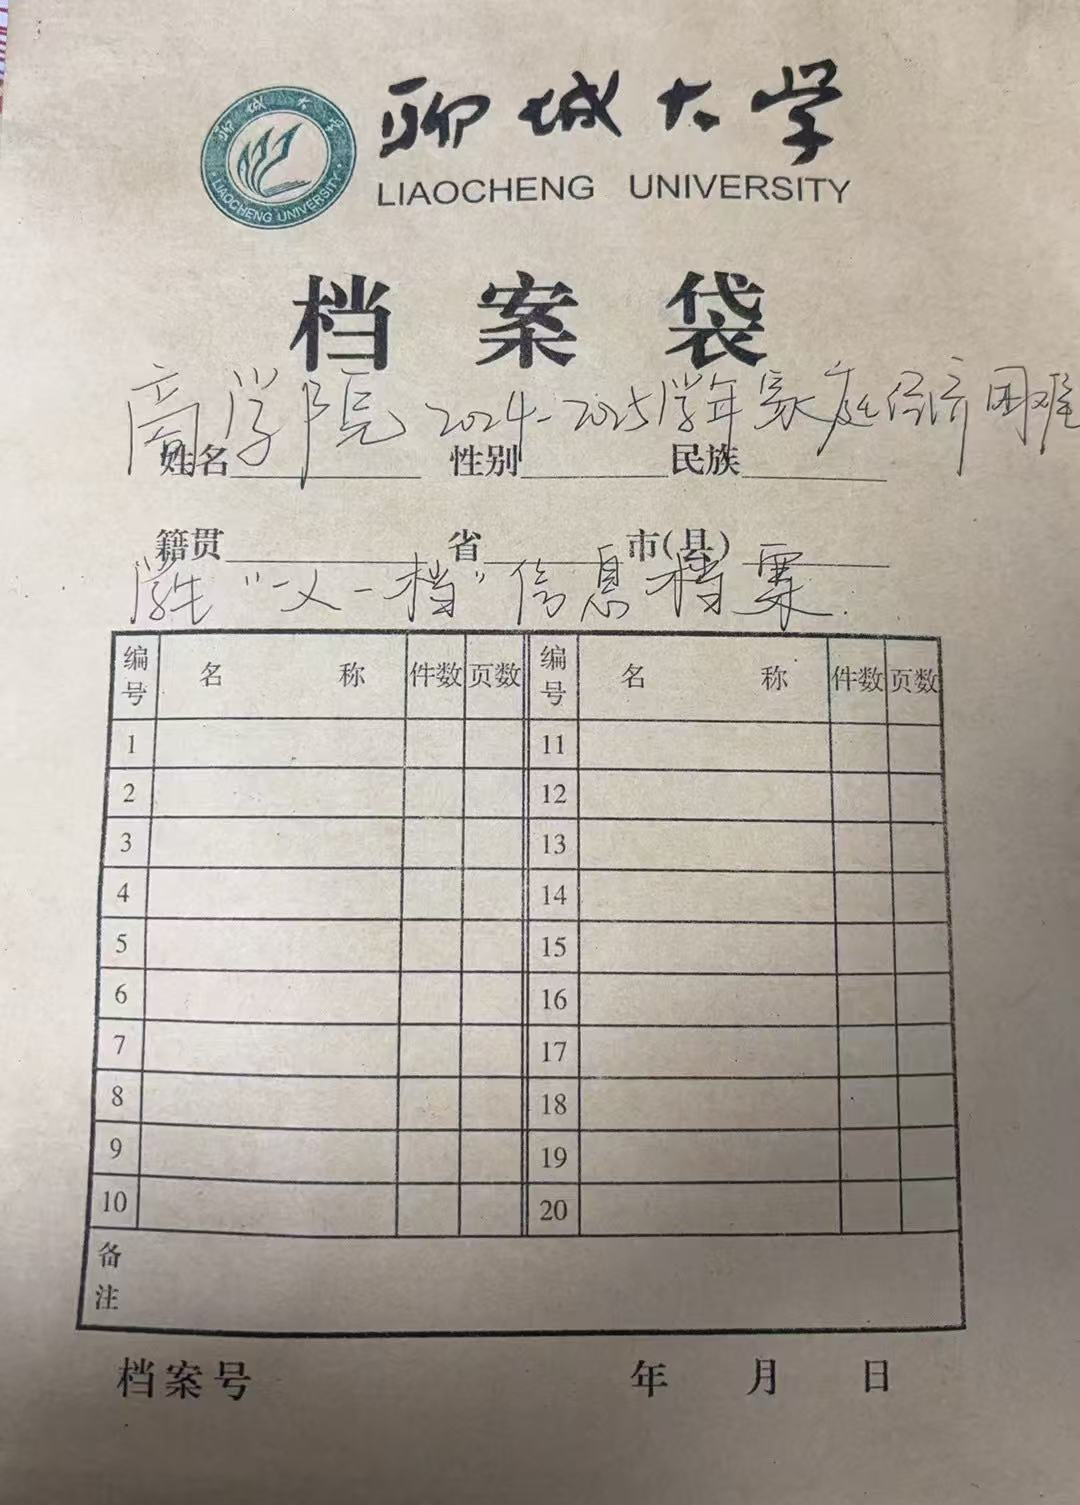 聊城大学
LIAOCHENG UNIVERSITY
聊城大学
LIAOCHENG UNIVERSITY
档案袋
商学院2024-2025学年家庭经济困难
姓名 性别 民族
籍贯 省 市(县)
学生“一人一档”信息档案.
编号 名称 件数 页数 编号 名称 件数 页数
1 11
2 12
3 13
4 14
5 15
6 16
7 17
8 18
9 19
10 20
备注
档案号 年 月 日